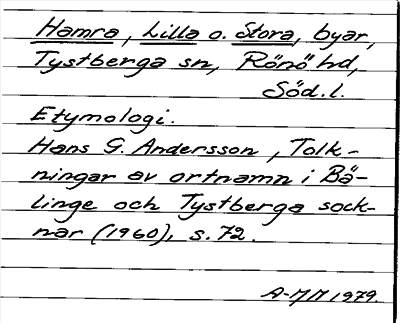 Hamra, Lilla o. Stora, byar,
Tystberga sn, Rönö hd,
Söd.l.
Etymologi.
Hans G. Andersson, Tolk-
ningar av ortnamn i Bä-
linge och Tystberga sock-
nar (1960), s. 72.
A-MM 1979.